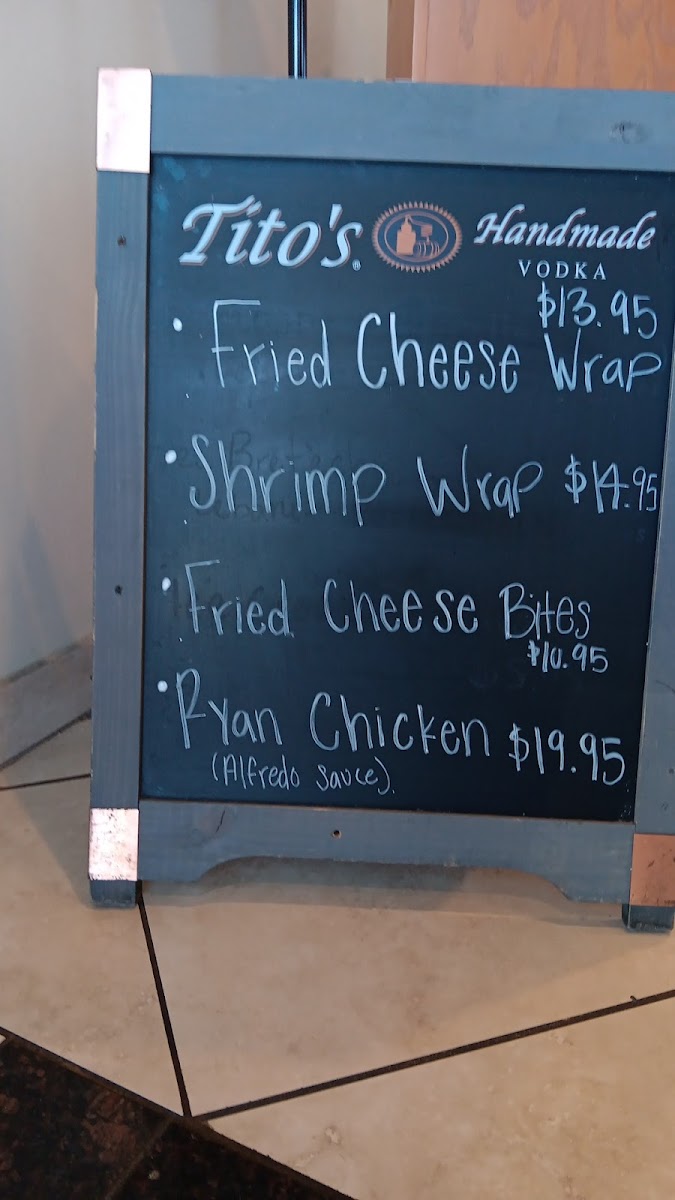 Tito's® Handmade
VODKA
$13.95
• Fried Cheese Wrap
• Shrimp Wrap $14.95
• Fried Cheese Bites
$10.95
• Ryan Chicken $19.95
(Alfredo sauce)